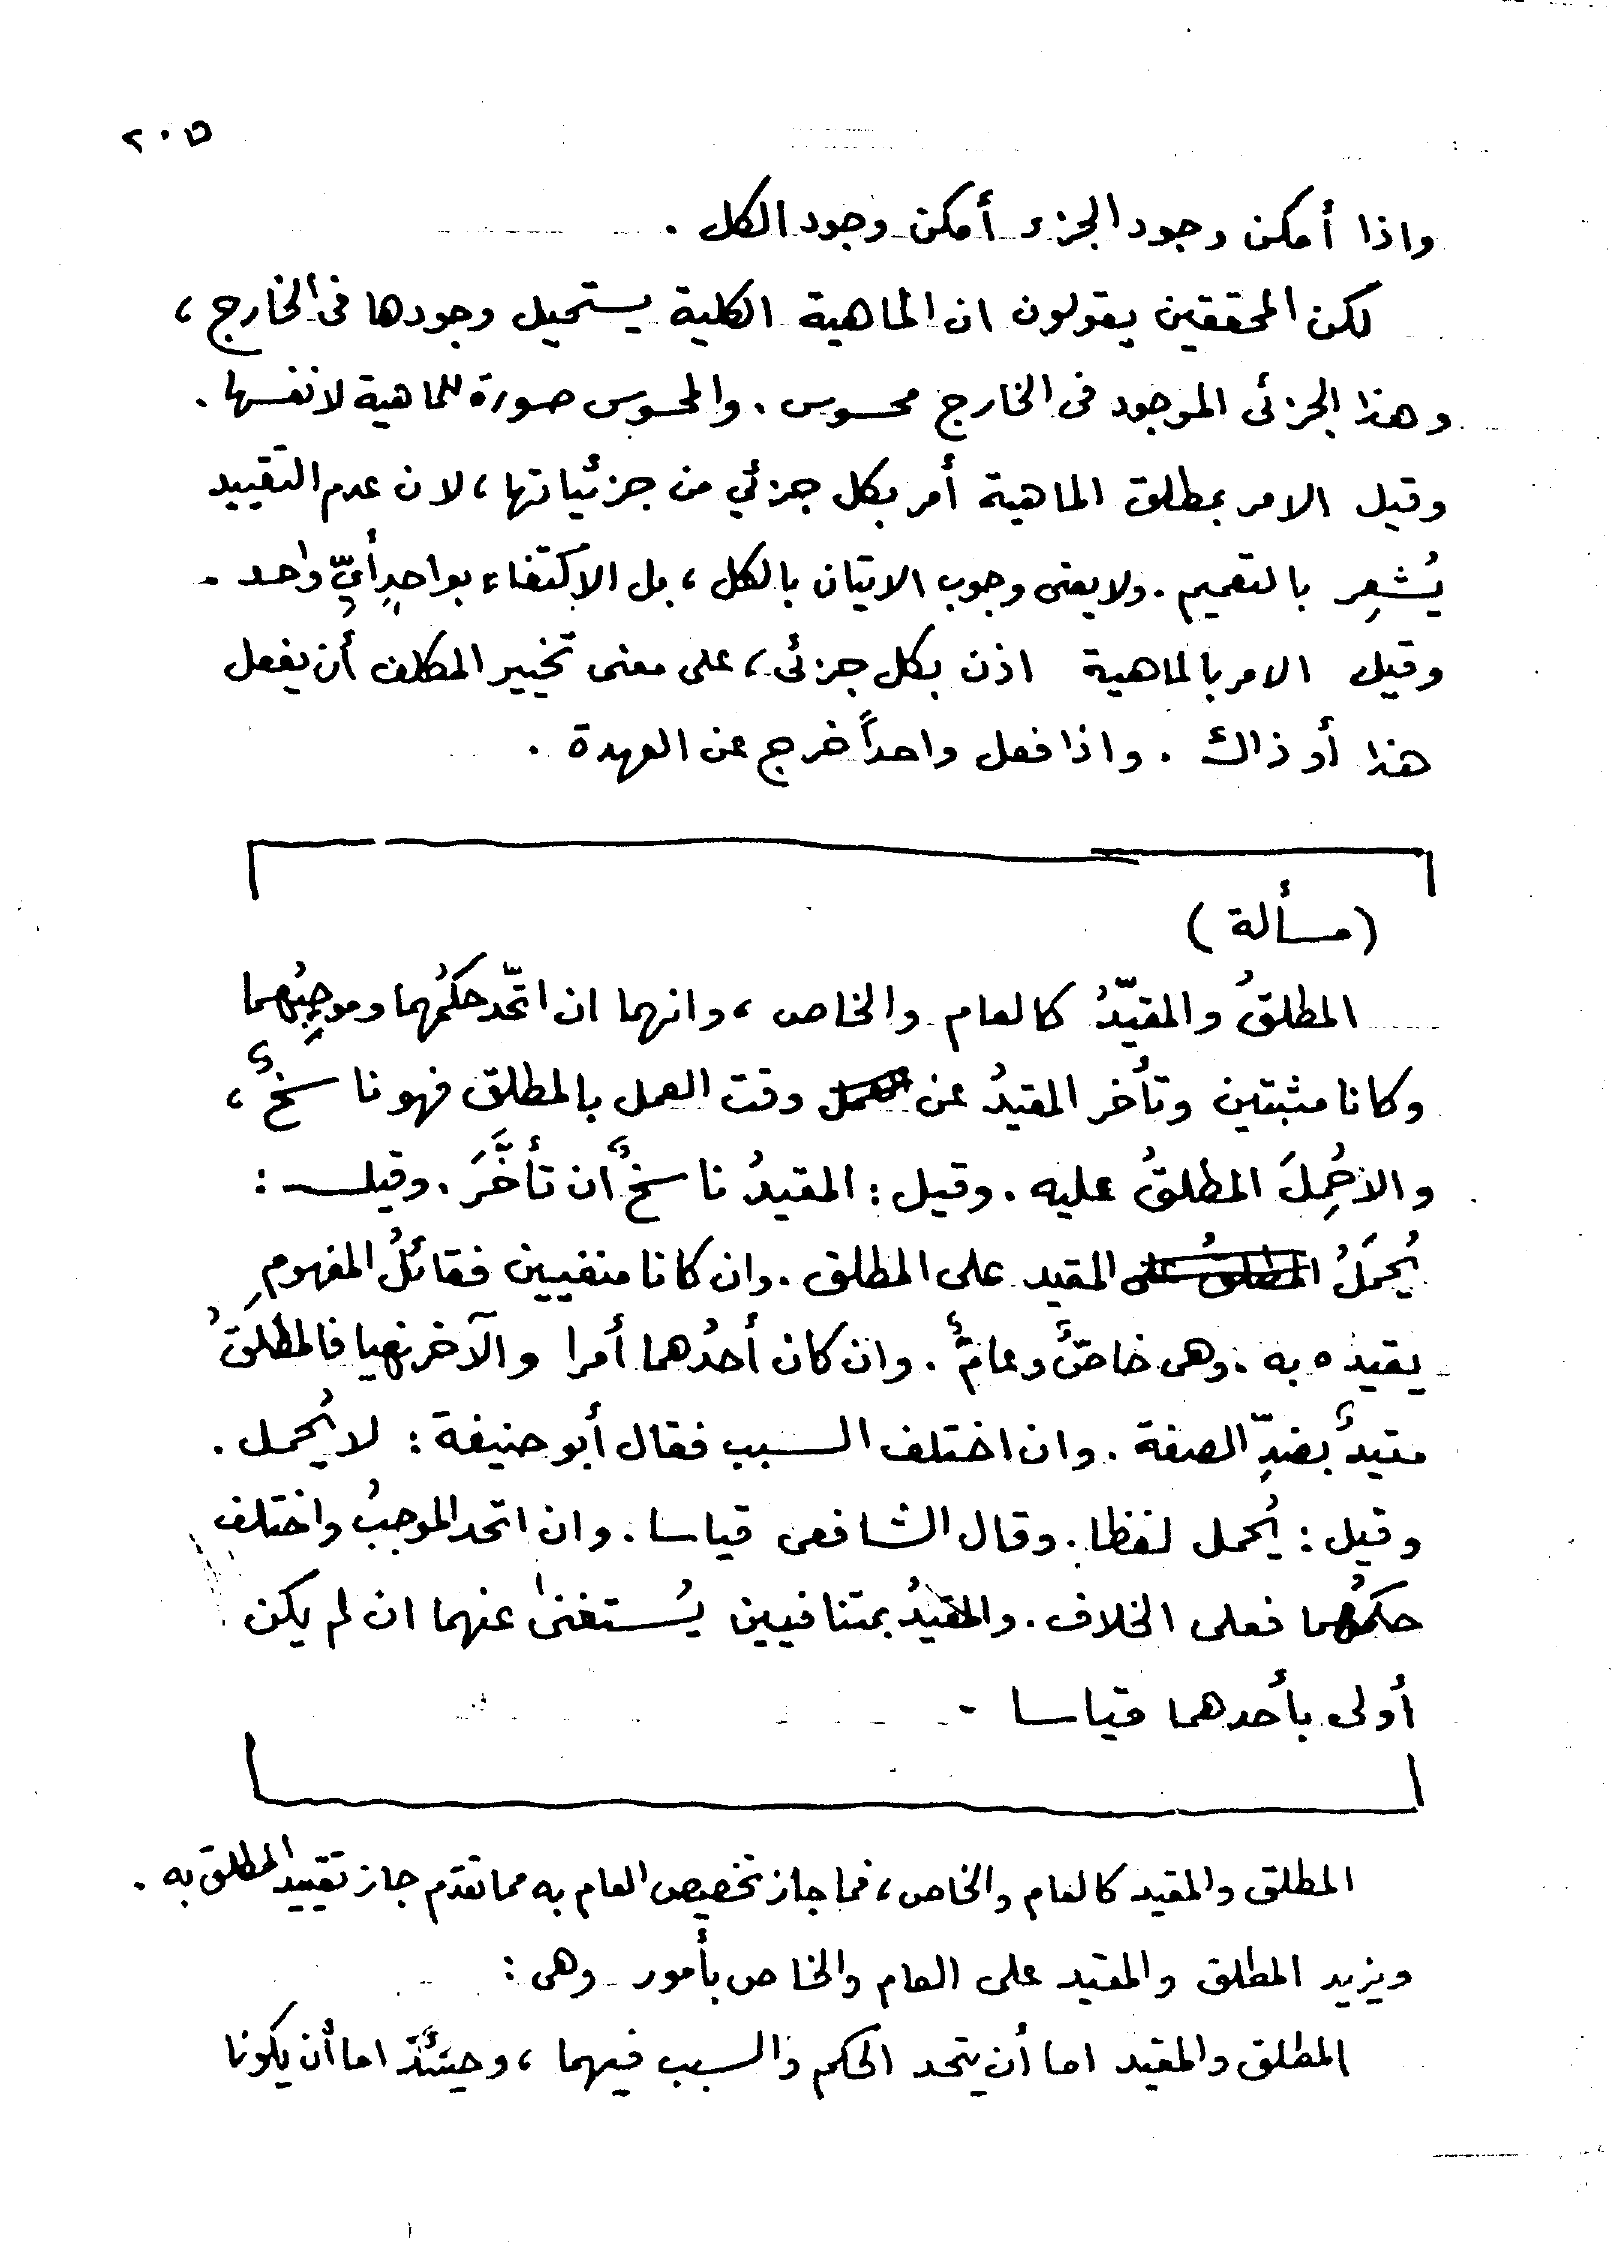 ٢٠٥
واذا أمكن وجود الجزء أمكن وجود الكل .
لكن المحققين يقولون ان الماهية الكلية يستحيل وجودها فى الخارج ،
وهذا الجزئى الموجود فى الخارج محسوس . والمحسوس صورة للماهية لا نفسها .
وقيل الامر بمطلق الماهية أمر بكل جزئي من جزئياتها ، لان عدم التقييد
يُشعِر بالتعميم . ولا يعنى وجوب الاتيان بالكل ، بل الاكتفاء بواحدٍ أيِّ واحد .
وقيل الامر بالماهية اذن بكل جزئى ، على معنى تخيير المكلف أن يفعل
هذا أو ذاك . واذا فعل واحداً خرج عن العهدة .
( مسألة )
المطلقُ والمقيّدُ كالعام والخاص ، وانهما ان اتّحد حكمُهما وموجِبُهما
وكانا مثبتين وتأخر المقيدُ عن وقت العمل بالمطلق فهو ناسخٌ ،
والا حُمِلَ المطلقُ عليه . وقيل : المقيدُ ناسخٌ ان تأخَّرَ . وقيل :
يُحمَلُ المقيد على المطلق . وان كانا منفيين فقائلُ المفهومِ
يقيده به . وهى خاصٌّ وعامٌّ . وان كان أحدُهما أمرا والآخر نهيا فالمطلقُ
مقيدٌ بضدِّ الصفة . وان اختلف السبب فقال أبو حنيفة : لا يُحمل .
وقيل : يُحمل لفظا . وقال الشافعى قياسا . وان اتحد الموجبُ واختلف
حكمُهما فعلى الخلاف . والمقيدُ بمتنافيين يُستغنىٰ عنهما ان لم يكن
أولى بأحدهما قياسا -
المطلق والمقيد كالعام والخاص ، فما جاز تخصيص العام به مما تقدم جاز تقييد المطلق به .
ويزيد المطلق والمقيد على العام والخاص بأمور وهى :
المطلق والمقيد اما أن يتحد الحكم والسبب فيهما ، وحينئذ اما أن يكونا